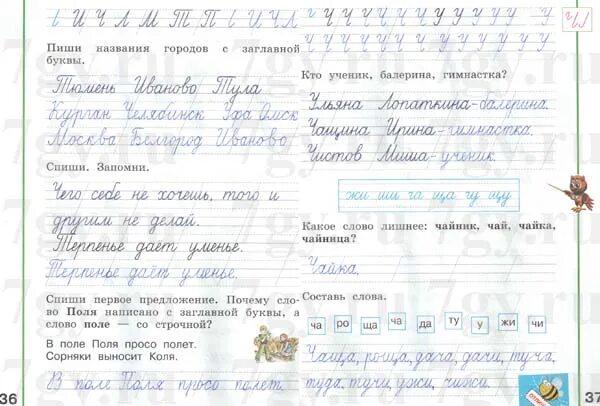 И Ч Л М Т П И Ч Л
Пиши названия городов с заглавной
буквы.
Тюмень Иваново Тула
Курган Челябинск Уфа Омск
Москва Белгород Иваново
Спиши. Запомни.
Чего себе не хочешь, того и
другим не делай.
Терпенье даёт уменье.
Терпенье даёт уменье.
Спиши первое предложение. Почему сло-
во Поля написано с заглавной буквы, а
слово поле — со строчной?
В поле Поля просо полет.
Сорняки выносит Коля.
В поле Поля просо полет.
36
Ч Ч Ч Ч Ч Ч У У У У У У
Ч Ч Ч Ч Ч Ч У У У У У У
Кто ученик, балерина, гимнастка?
Ульяна Лопаткина-балерина.
Чащина Ирина-гимнастка.
Чистов Миша-ученик.
жи ши ча ща чу щу
Какое слово лишнее: чайник, чай, чайка,
чайница?
Чайка.
Составь слова.
ча ро ща ча да ту у жи чи
Чаща, роща, дача, дачи, туча,
туда, тучи, ужи, чижи.
37
7gy.ru